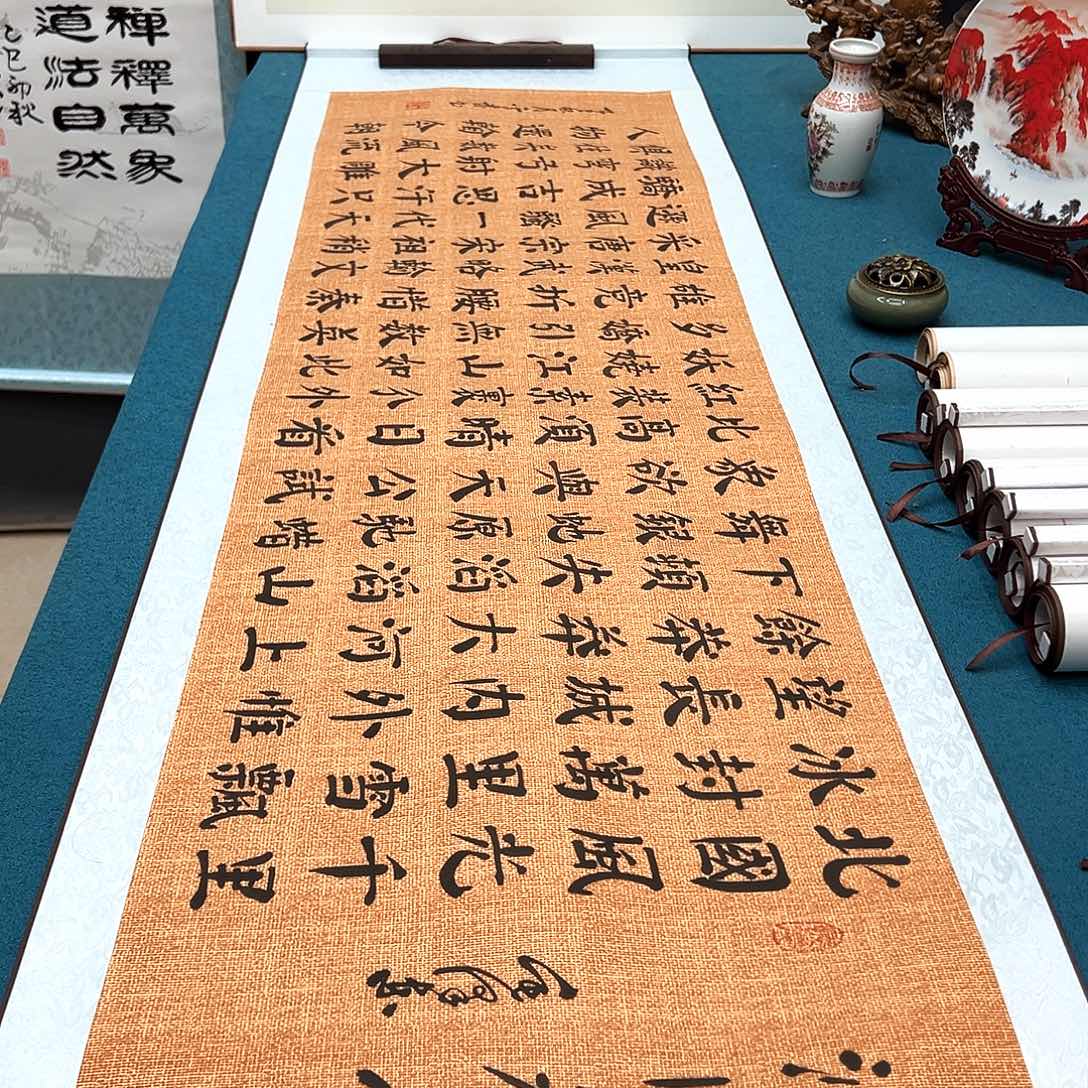 禪釋萬象
道法自然
乙巳初秋
北國風光千里
冰封萬里雪飄
望長城內外惟
餘莽莽大河上
下頓失滔滔山
舞銀蛇原馳蠟
象欲與天公試
比高須晴日看
紅裝素裹分外
妖嬈江山如此
多嬌引無數英
雄竟折腰惜秦
皇漢武略輸文
采唐宗宋祖稍
遜風騷一代天
驕成吉思汗只
識彎弓射大雕
俱往矣數風流
人物還看今朝